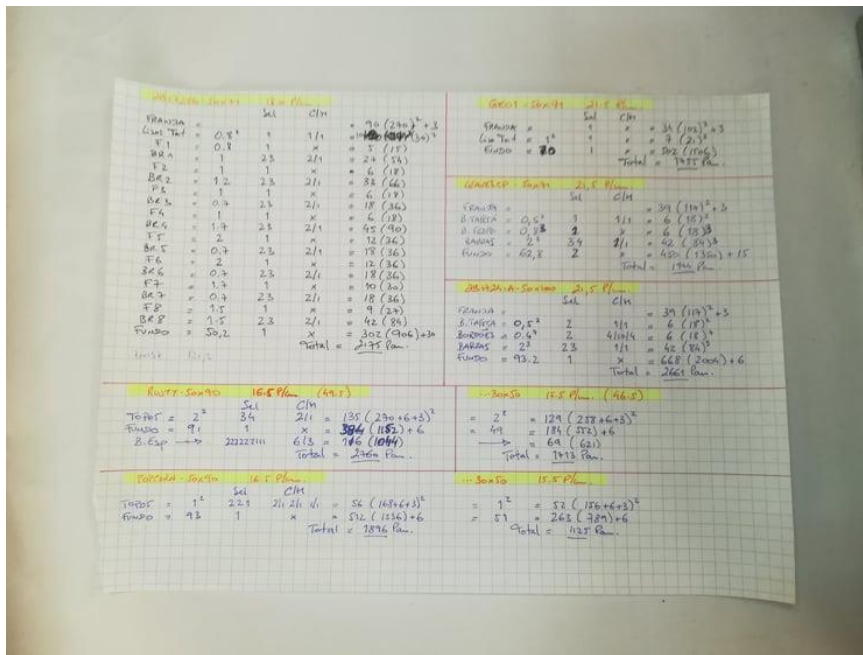 50x71 18.0 P/cm.
Sel C/M
FRANJA = = 90 (270)² + 3
Liso Taf = 0.8² 1 1/1 (30)²
F.1 = 0.8 1 x = 5 (15)
BR1 = 1 23 2/1 = 27 (54)
F2 = 1 1 x = 6 (18)
BR2 = 1.2 23 2/1 = 33 (66)
F3 = 1 1 x = 6 (18)
BR3 = 0.7 23 2/1 = 18 (36)
F4 = 1 1 x = 6 (18)
BR4 = 1.7 23 2/1 = 45 (90)
F5 = 2 1 x = 12 (36)
BR5 = 0.7 23 2/1 = 18 (36)
F6 = 2 1 x = 12 (36)
BR6 = 0.7 23 2/1 = 18 (36)
F7 = 1.7 1 x = 10 (30)
BR7 = 0.7 23 2/1 = 18 (36)
F8 = 1.5 1 x = 9 (27)
BR8 = 1.5 23 2/1 = 42 (84)
FUNDO = 50,2 1 x = 302 (906)+30
Total = 2175 Pan.
50x71 21.5 P/cm.
Sel C/M
FRANJA = 1 x = 34 (102)² + 3
Liso Taf = 1² 1 x = 7 (21)²
FUNDO = 70 1 x = 502 (1506)
Total = 1755 Pan.
50x71 21,5 P/cm.
Sel C/M
FRANJA = = 39 (117)² + 3
B.TAFTÁ = 0,5² 1 1/1 = 6 (18)²
= 6 (18)³
BARRAS = 2² 34 2/1 = 42 (84)³
FUNDO = 62,8 2 x = 450 (1350) + 15
Total = Pan.
50x100 21,5 P/cm.
Sel C/M
FRANJA = = 39 (117)² + 3
B.TAFTÁ = 0,5² 2 1/1 = 6 (18)²
BORDÕES = 0.4⁴ 2 4/10/4 = 6 (18)⁴
BARRAS = 2² 23 1/1 = 42 (84)²
FUNDO = 93.2 1 x = 668 (2004) + 6
Total = 2661 Pan.
RUSTY-50x90 16.5 P/cm. (49.5)
Sel C/M
TOPOS = 2² 34 2/1 = 135 (270+6+3)²
FUNDO = 91 1 x = 384 (1152) + 6
B.Esp → 222227111 6/3 = 116 (1044)
Total = 2760 Pan.
...30x50 15.5 P/cm. (46.5)
= 2² = 129 (258+6+3)²
= 49 = 184 (552) + 6
→ = 69 (621)
Total = 1713 Pan.
50x90 16.5 P/cm.
Sel C/M
TOPOS = 1² 221 2/1 2/1 1/1 = 56 (168+6+3)²
FUNDO = 93 1 x = 512 (1536)+6
Total = 1896 Pan.
...30x50 15.5 P/cm.
= 1² = 52 (156+6+3)²
= 51 = 263 (789)+6
Total = 1125 Pan.